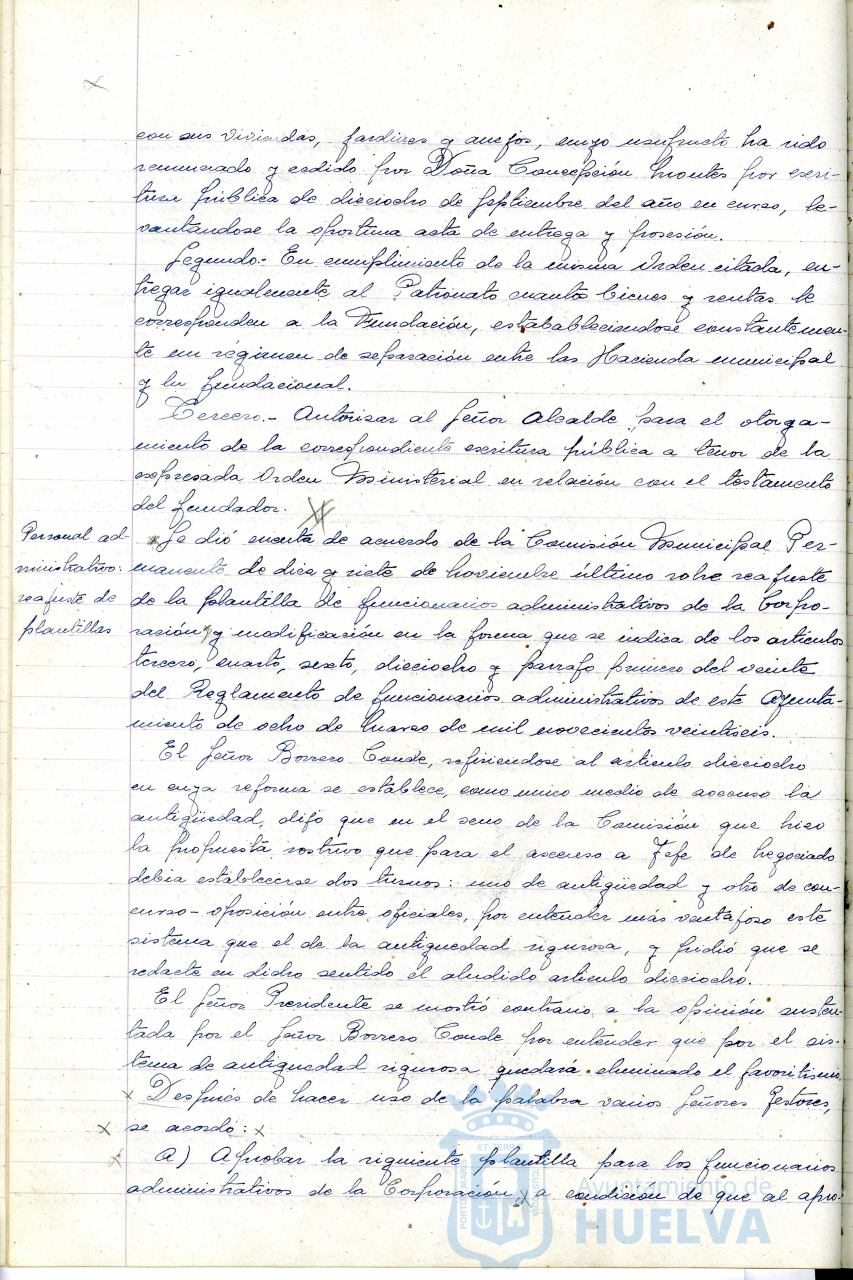 con sus viviendas, jardines y anejos, cuyo usufructo ha sido
renunciado y cedido por Doña Concepción Montes por escri-
tura pública de dieciocho de Septiembre del año en curso, le-
vantándose la oportuna acta de entrega y posesión.
Segundo.- En cumplimiento de la misma Orden citada, en-
tregar igualmente al Patronato cuanta bienes y rentas le
corresponden a la Fundación, estabableciendose constantemen-
te un régimen de separación entre las Hacienda municipal
y la fundacional.
Tercero.- Autorizar al Señor Alcalde para el otorga-
miento de la correspondiente escritura pública a tenor de la
expresada Orden Ministerial en relación con el testamento
del fundador.
Personal ad-
ministrativo:
reajuste de
plantillas
Se dió cuenta de acuerdo de la Comisión Municipal Per-
manente de diez y siete de Noviembre último sobre reajuste
de la plantilla de funcionarios administrativos de la Corpo-
ración, y modificación en la forma que se indica de los artículos
tercero, cuarto, sexto, dieciocho y parrafo primero del veinte
del Reglamento de funcionarios administrativos de este Ayunta-
miento de ocho de Marzo de mil novecientos veintiseis.
El Señor Borrero Conde, refiriendose al articulo dieciocho
en cuya reforma se establece, como unico medio de ascenso la
antigüedad, dijo que en el seno de la Comisión que hizo
la propuesta sostuvo que para el ascenso a Jefe de Negociado
debia establecerse dos turnos: uno de antigüedad y otro de con-
curso-oposición entre oficiales, por entender más ventajoso este
sistema que el de la antiguedad rigurosa, y pidió que se
redacte en dicho sentido el aludido articulo dieciocho.
El Señor Presidente se mostró contrario a la opinión susten-
tada por el Señor Borrero Conde por entender que por el sis-
tema de antiguedad rigurosa quedará eliminado el favoritismo.
Después de hacer uso de la palabra varios Señores Gestores,
se acordó:
A) Aprobar la siguiente plantilla para los funcionarios
administrativos de la Corporación, a condición de que al apro-
PORTUS MARIS ET TERRAE CUSTODIA
Ayuntamiento de
HUELVA